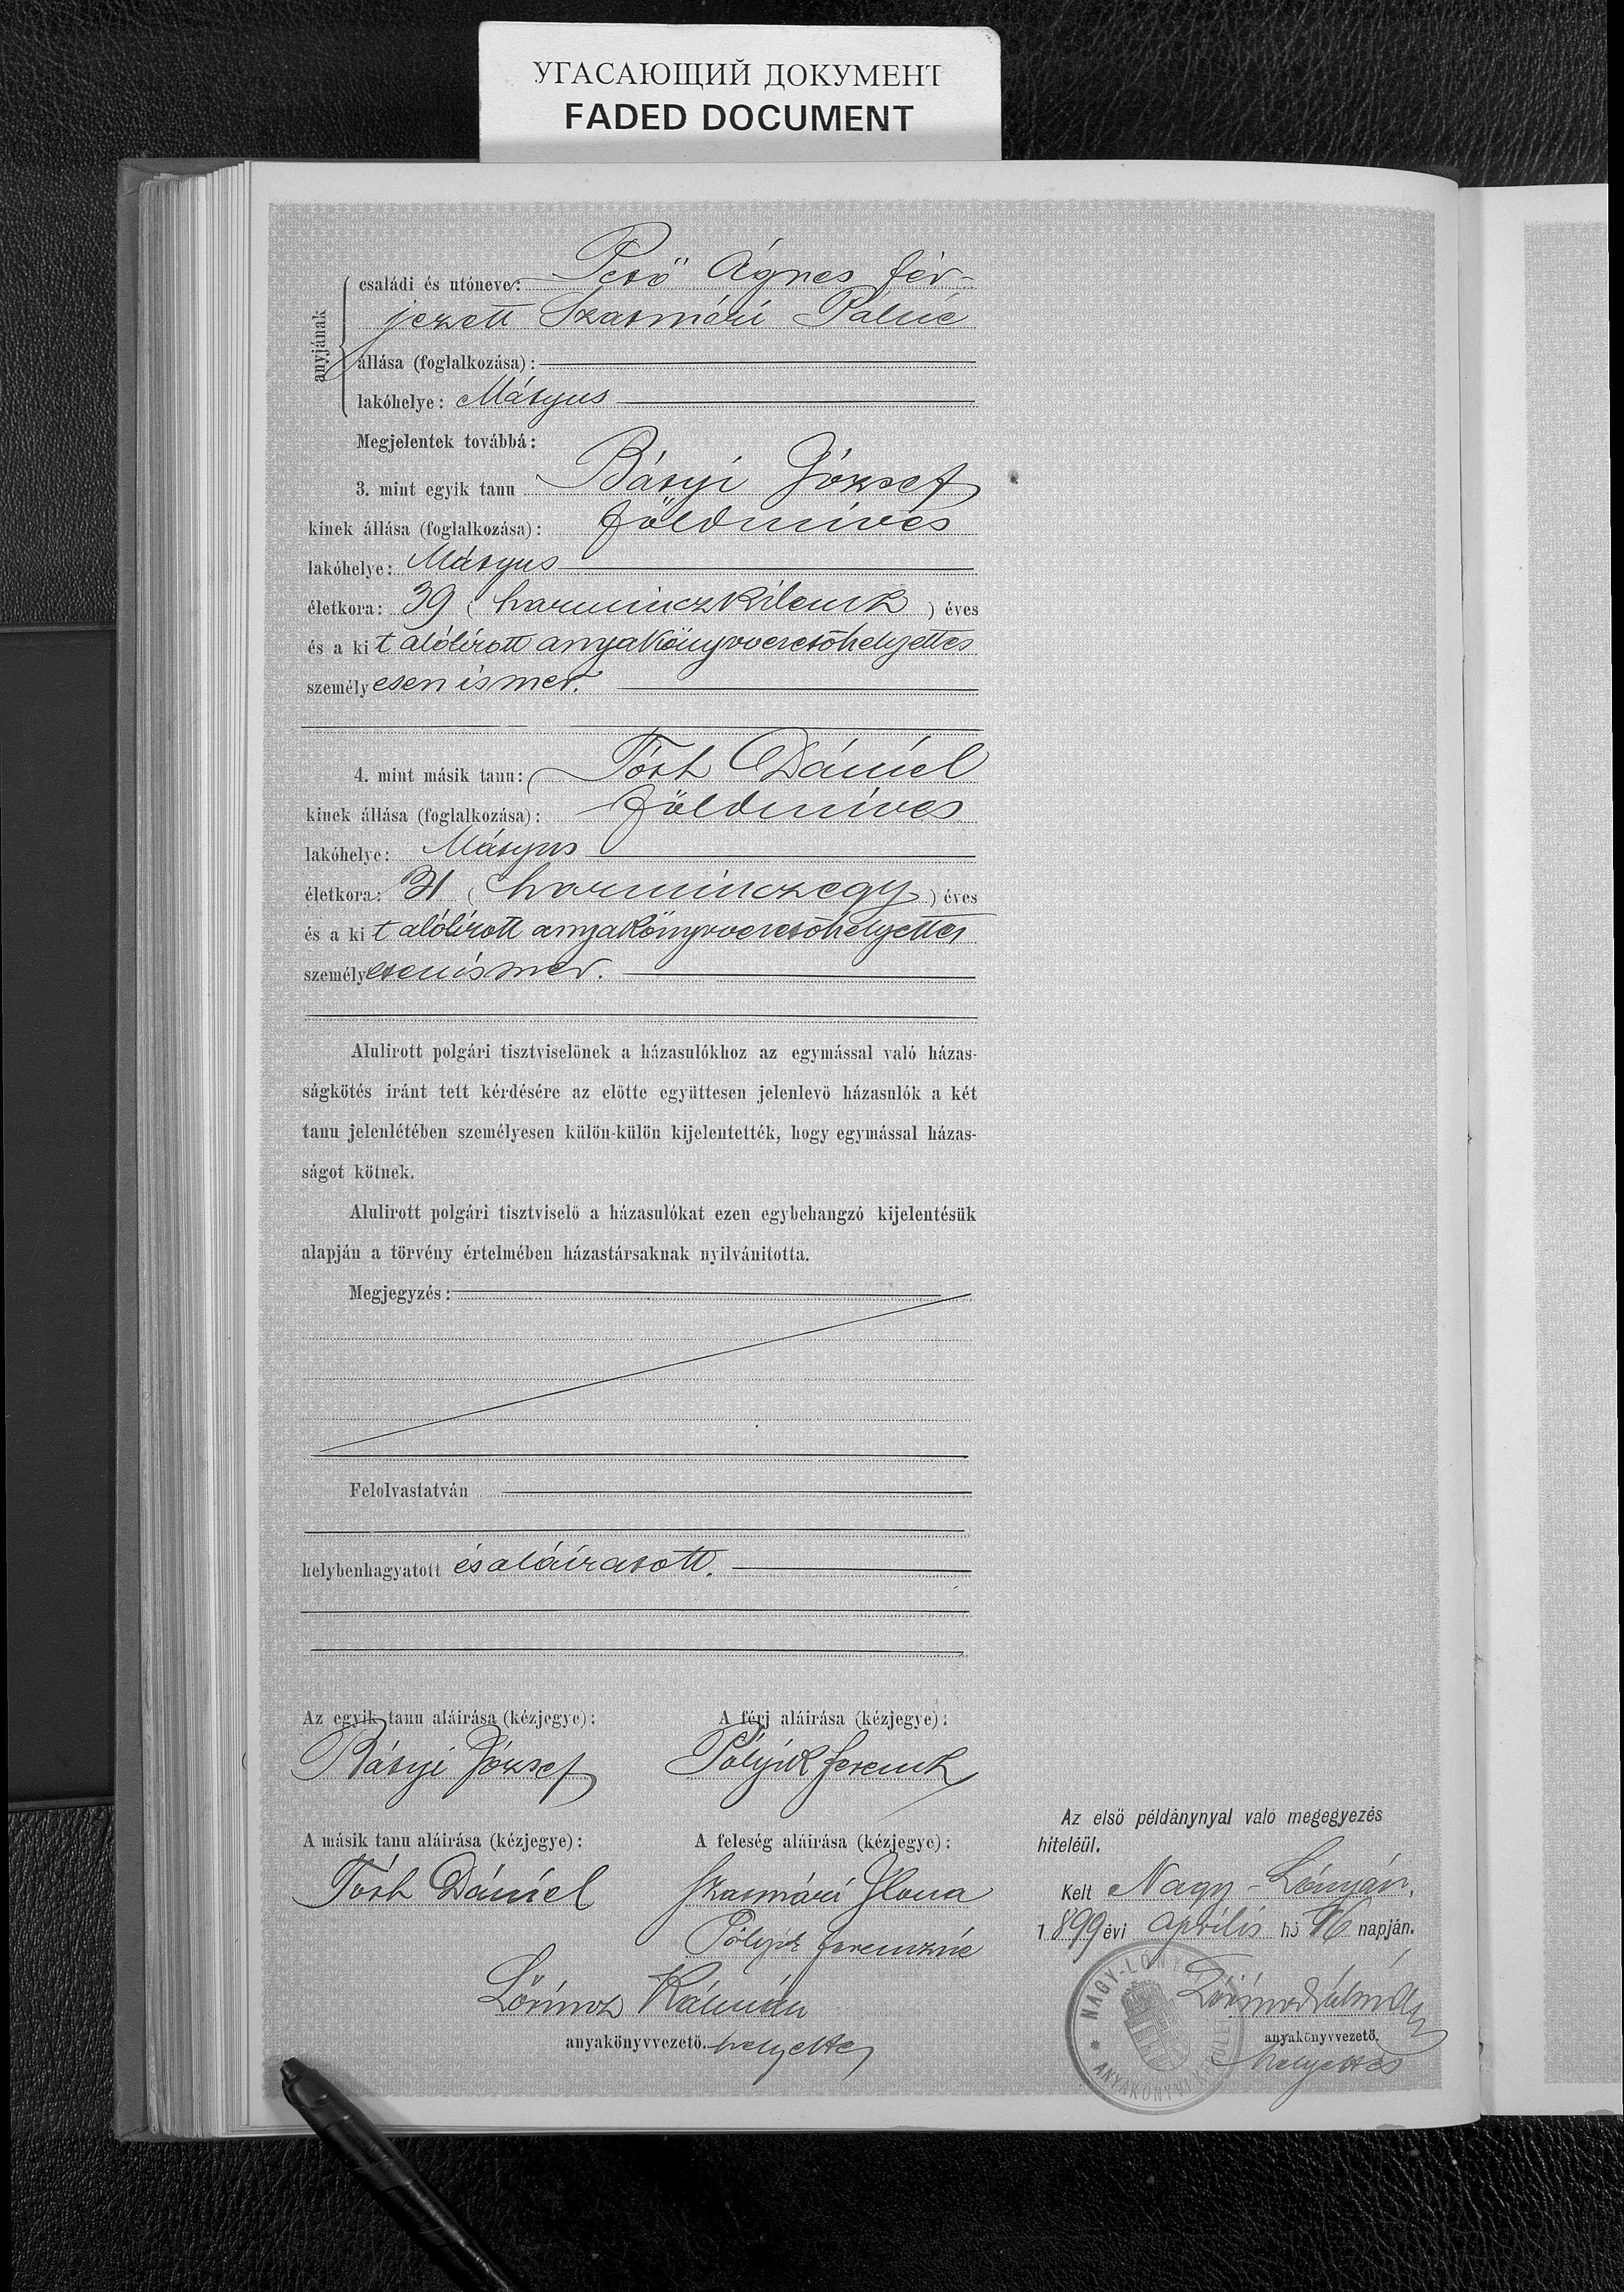 УГАСАЮЩИЙ ДОКУМЕНТ
FADED DOCUMENT
anyjának
családi és utóneve: Pető Ágnes fér-
jezett Szatmári Pálné
állása (foglalkozása):
lakóhelye: Mátyus
Megjelentek továbbá:
3. mint egyik tanu Bátyi József
kinek állása (foglalkozása): földmíves
lakóhelye: Mátyus
életkora: 39 (harminczkilencz) éves
és a kit alólírott anyakönyvvezetőhelyettes
személyesen ismer.
4. mint másik tanu: Tóth Dániel
kinek állása (foglalkozása): földmíves
lakóhelye: Mátyus
életkora: 31 (harminczegy) éves
és a kit alólírott anyakönyvvezetőhelyettes
személyesen ismer.
Alulirott polgári tisztviselönek a házasulókhoz az egymással való házas-
ságkötés iránt tett kérdésére az elötte együttesen jelenlevö házasulók a két
tanu jelenlétében személyesen külön-külön kijelentették, hogy egymással házas-
ságot kötnek.
Alulirott polgári tisztviselö a házasulókat ezen egybehangzó kijelentésük
alapján a törvény értelmében házastársaknak nyilvánitotta.
Megjegyzés:
Felolvastatván
helybenhagyatott és aláíratott.
Az egyik tanu aláirása (kézjegye): A férj aláirása (kézjegye):
Bátyi József Pólyik Ferencz
A másik tanu aláirása (kézjegye): A feleség aláirása (kézjegye):
Tóth Dániel Szatmári Ilona
Pólyik Ferenczné
Lőrincz Kálmán
anyakönyvvezetö. helyettes
Az elsö példánynyal való megegyezés
hiteléül.
Kelt Nagy-Lónyán,
1899 évi április hó 16 napján.
Lőrincz Kálmán
anyakönyvvezetö.
helyettes
NAGY-LÓNYAI
* ANYAKÖNYVI KERÜLET